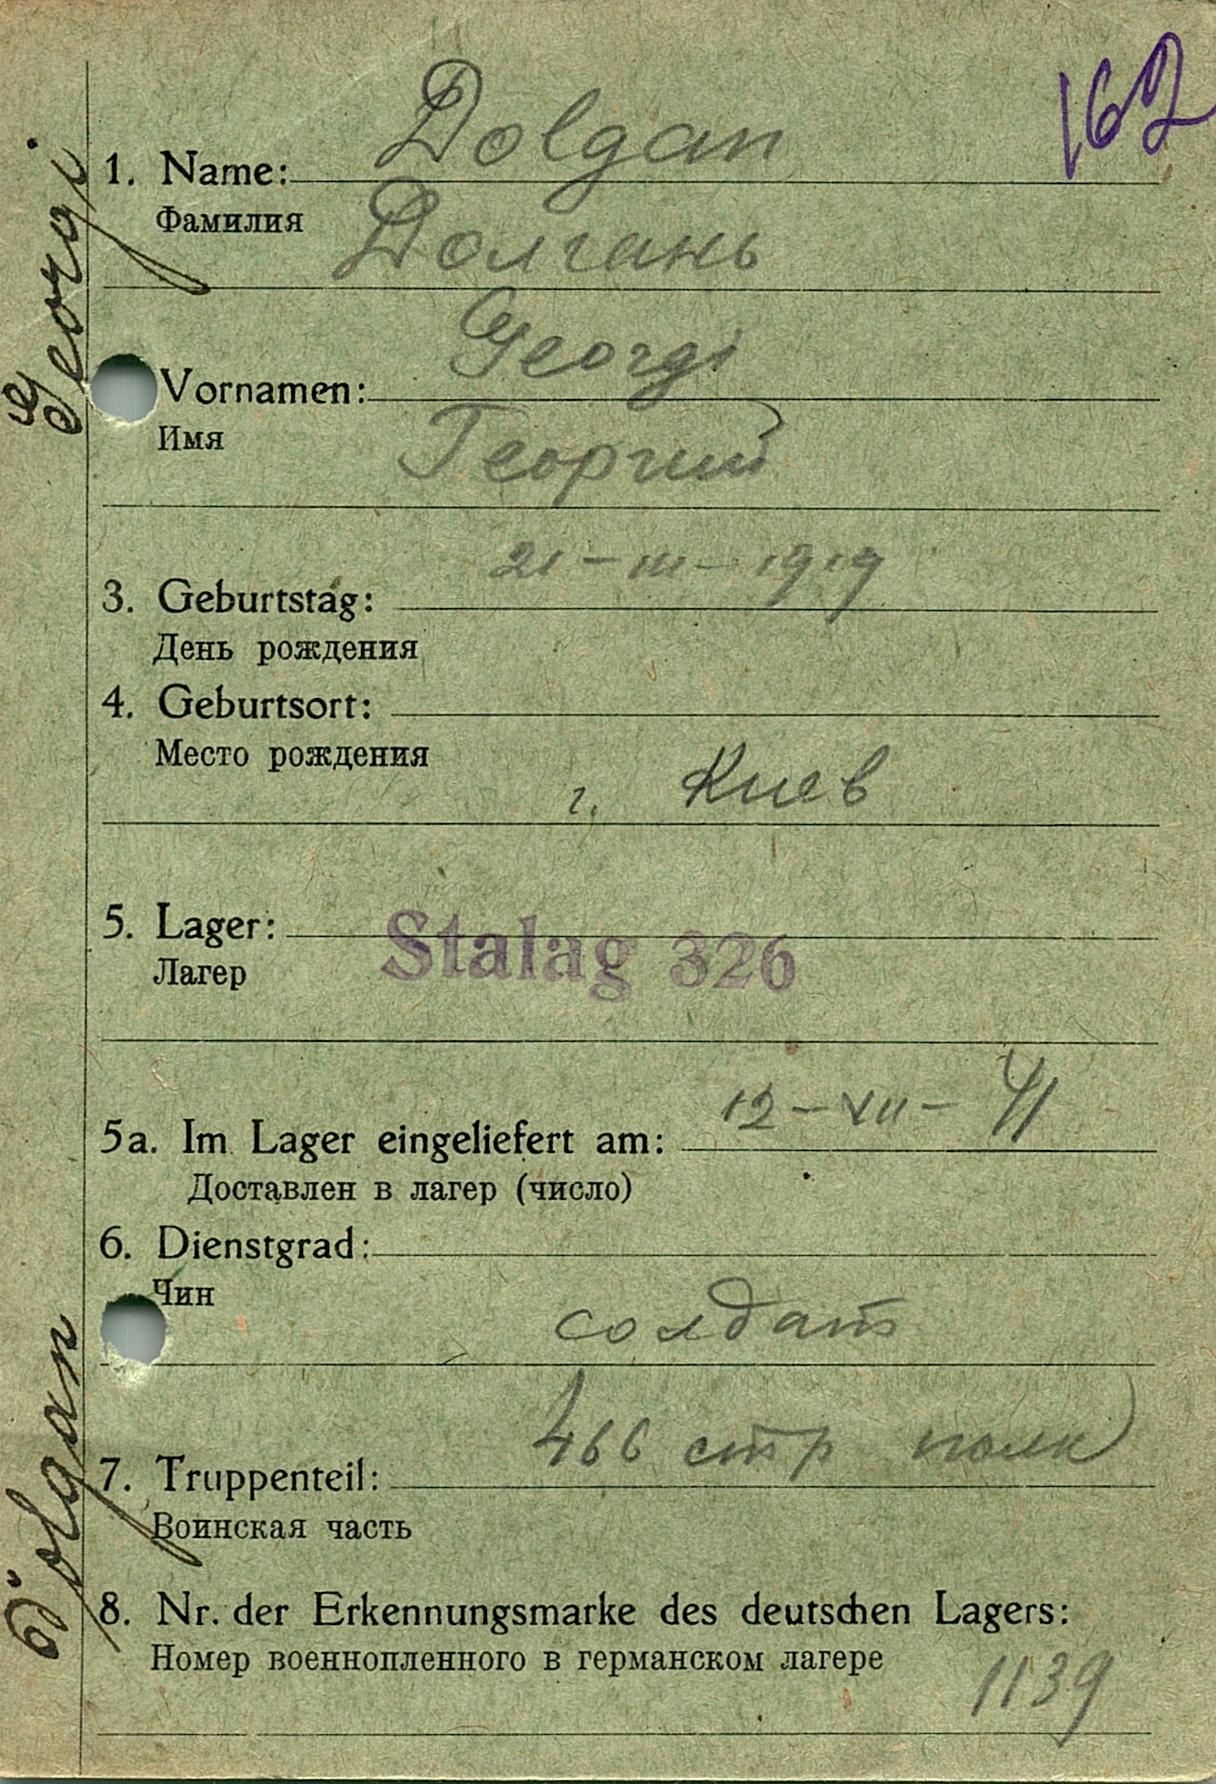 162
Dolgan
1. Name:
Фамилия
Долгань
Georgi
Vornamen:
Имя
Георгий
21-III-1919
3. Geburtstag:
День рождения
4. Geburtsort:
Место рождения
г. Киев
5. Lager: Stalag 326
Лагер
5a. Im Lager eingeliefert am: 12-XII-41
Доставлен в лагер (число)
6. Dienstgrad:
Чин
солдат
466 стр полк
7. Truppenteil:
Воинская часть
8. Nr. der Erkennungsmarke des deutschen Lagers:
Номер военнопленного в германском лагере
1139
Dolgan Georgi